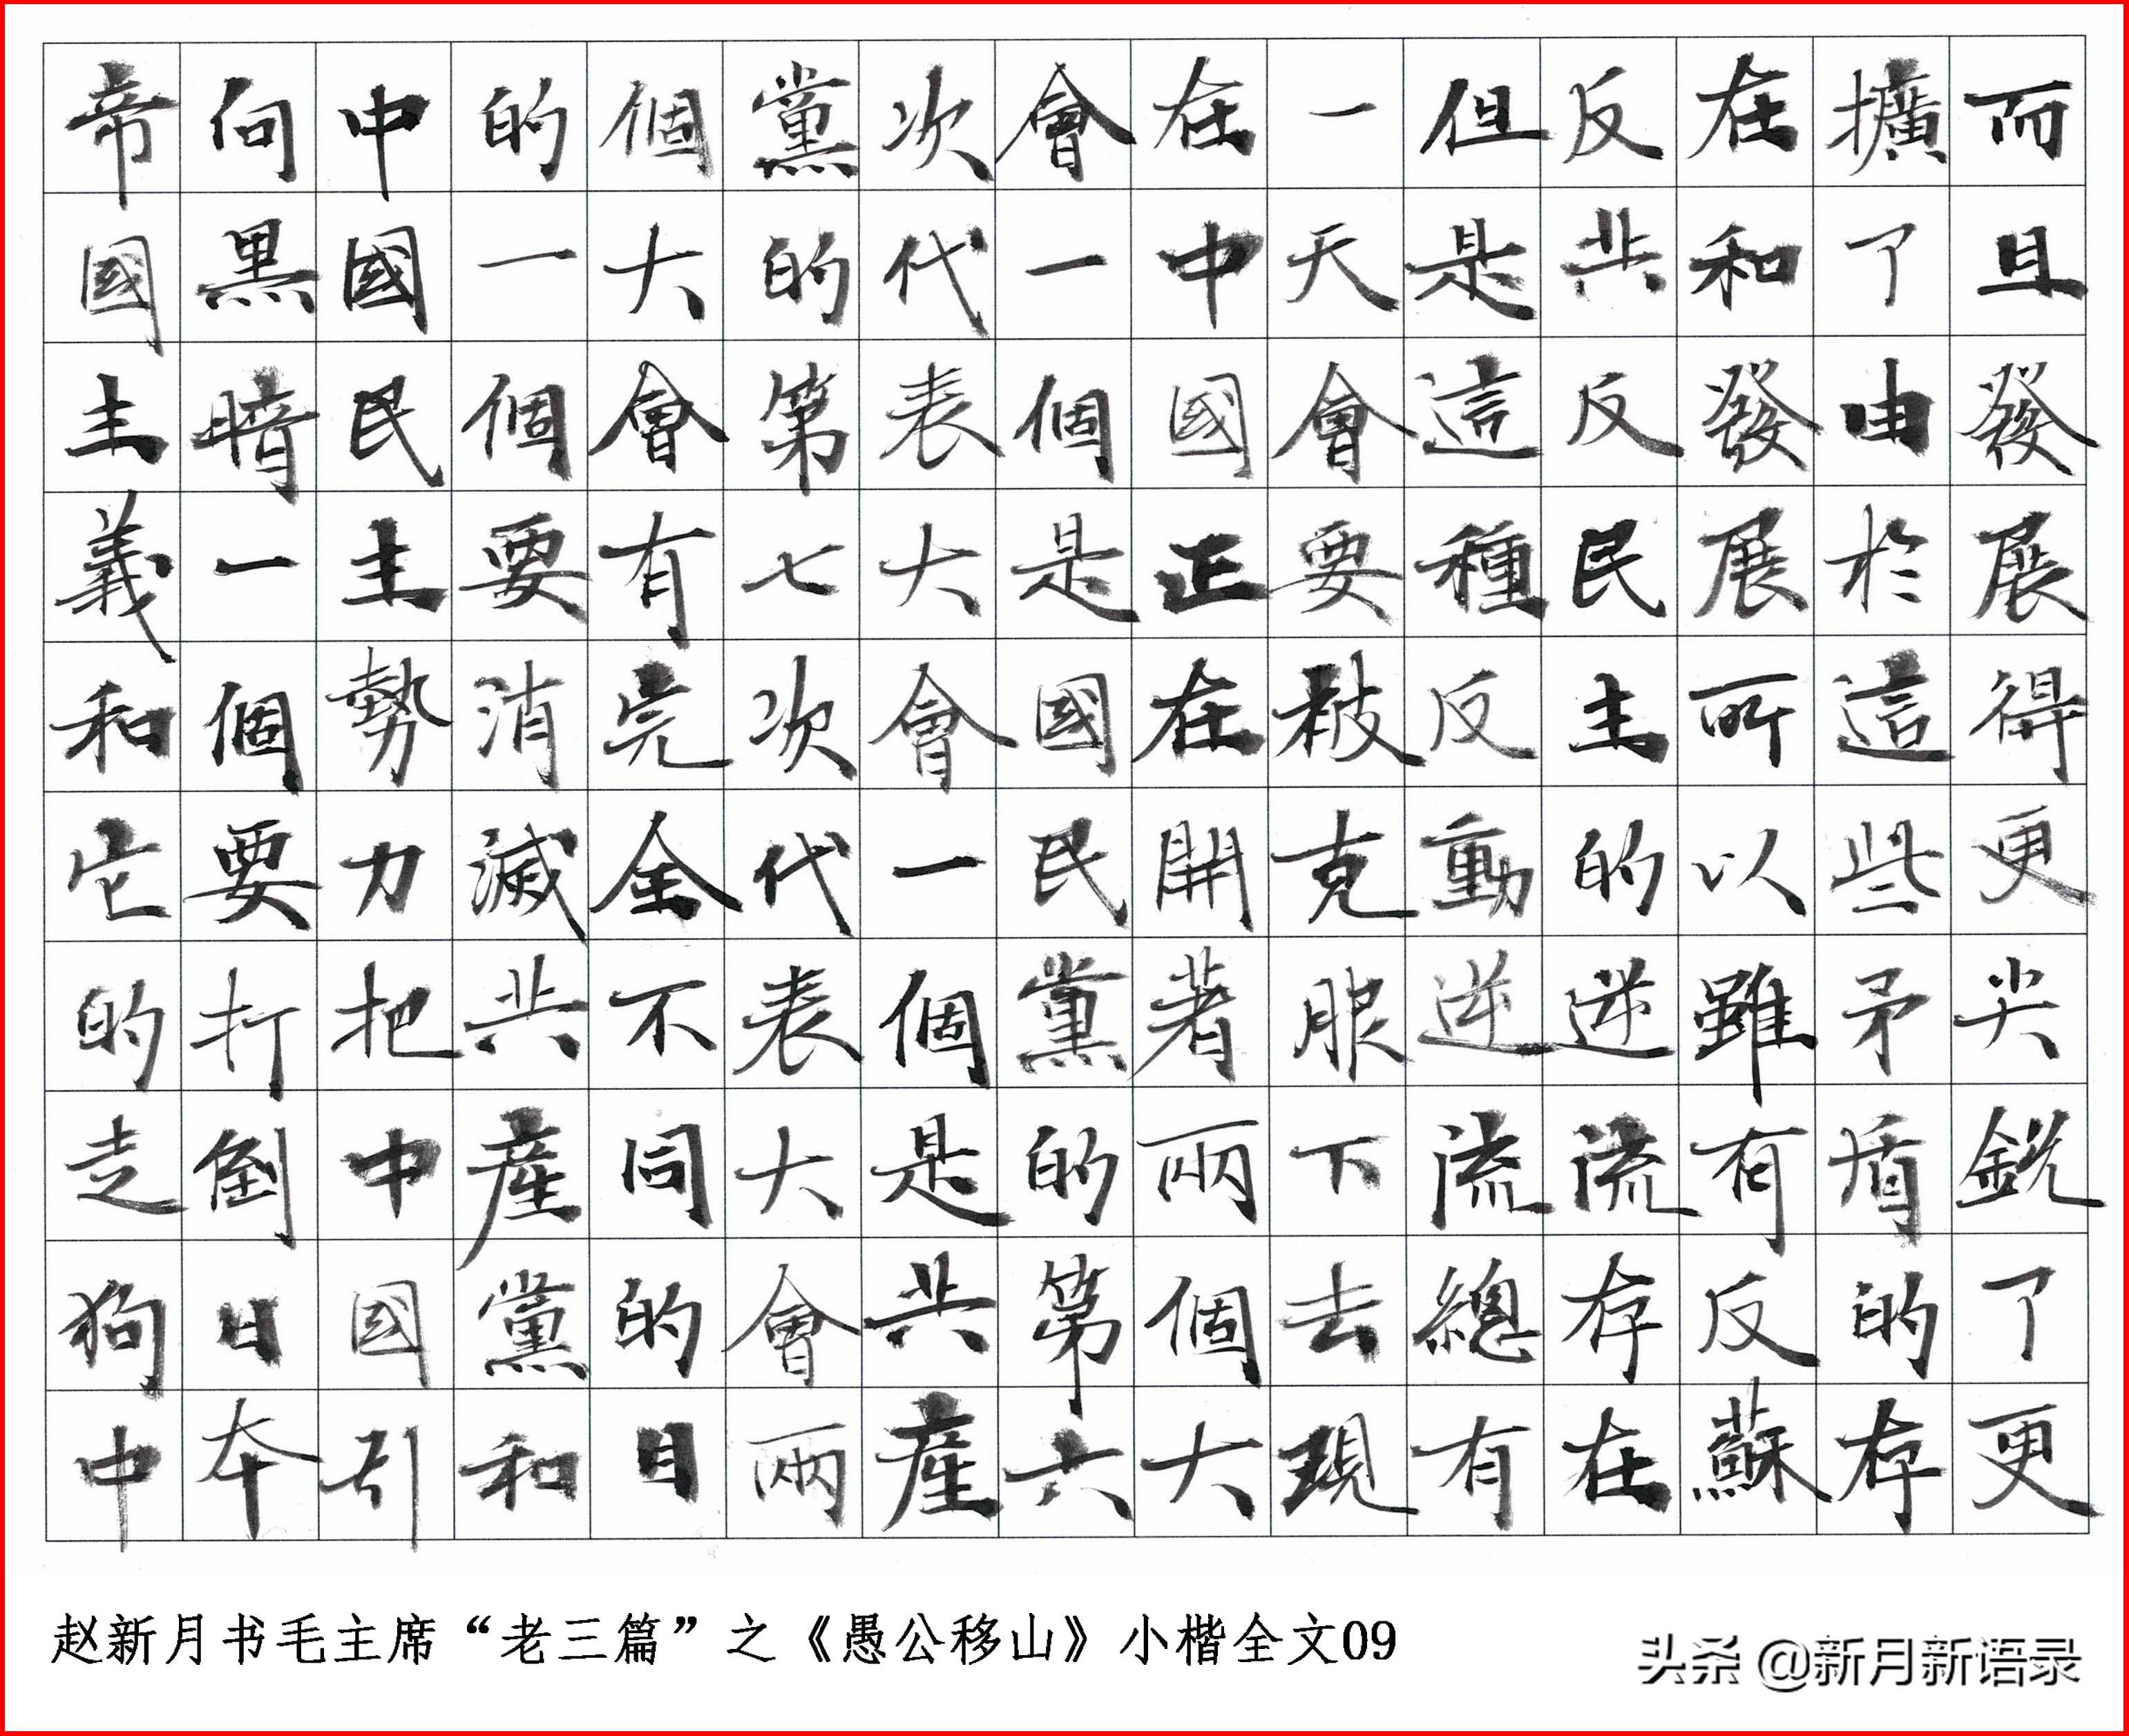 而且發展得更尖銳了更
擴了由於這些矛盾的存
在和發展所以雖有反蘇
反共反民主的逆流存在
但是這種反動逆流總有
一天會要被克服下去現
在中國正在開著兩個大
會一個是國民黨的第六
次代表大會一個是共產
黨的第七次代表大會兩
個大會有完全不同的目
的一個要消滅共產黨和
中國民主勢力把中國引
向黑暗一個要打倒日本
帝國主義和它的走狗中
赵新月书毛主席“老三篇”之《愚公移山》小楷全文09
头条 @新月新语录